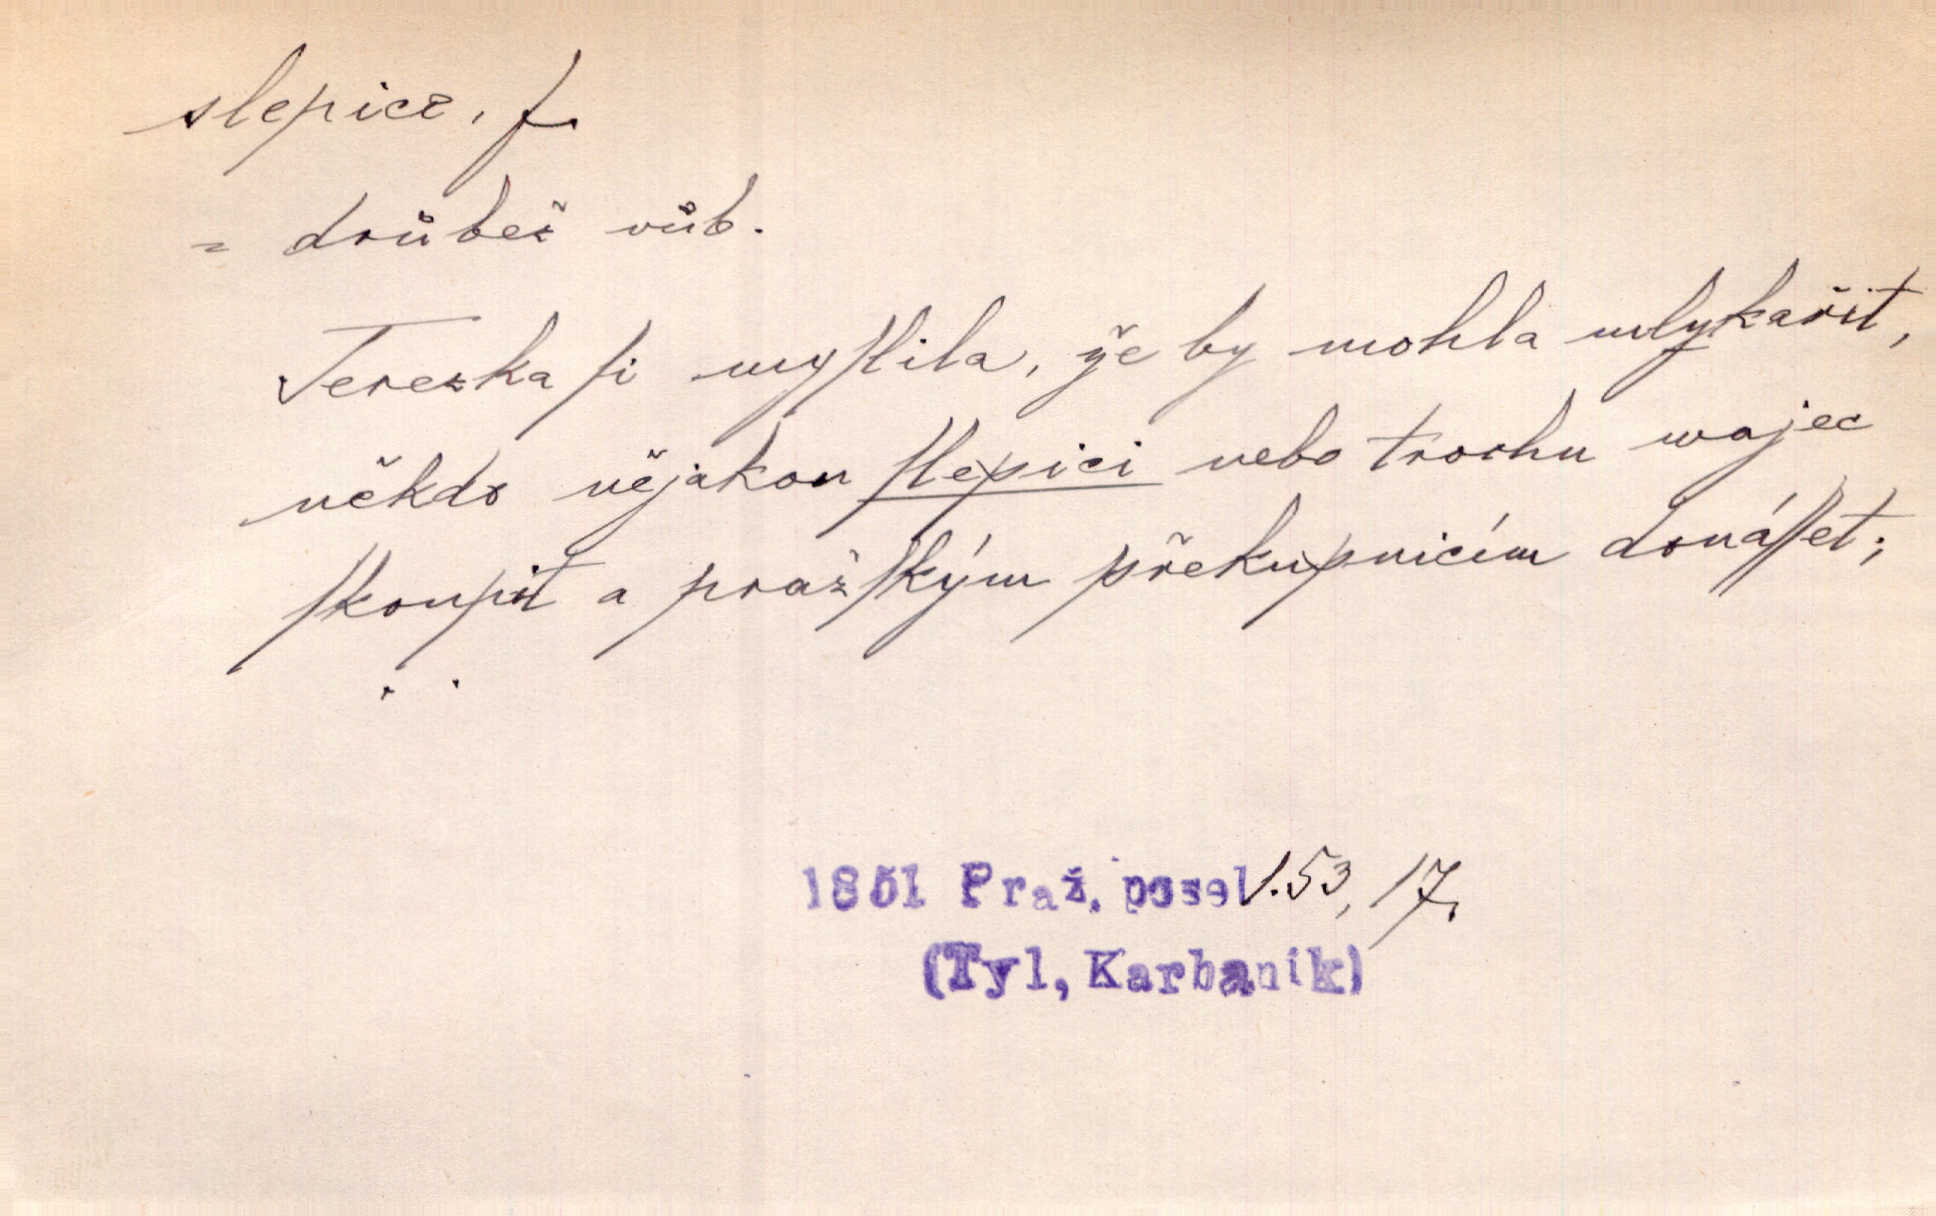 slepice, f.
= drůbež vůb.
Terezka ſi myſlila, že by mohla mlykařit,
někdo nějakou ſlepici nebo trochu wajec
ſkoupit a pražſkým překupnicím donáſſet;
. .
1851 Praž. posel 1.53, 17.
(Tyl, Karbaník)